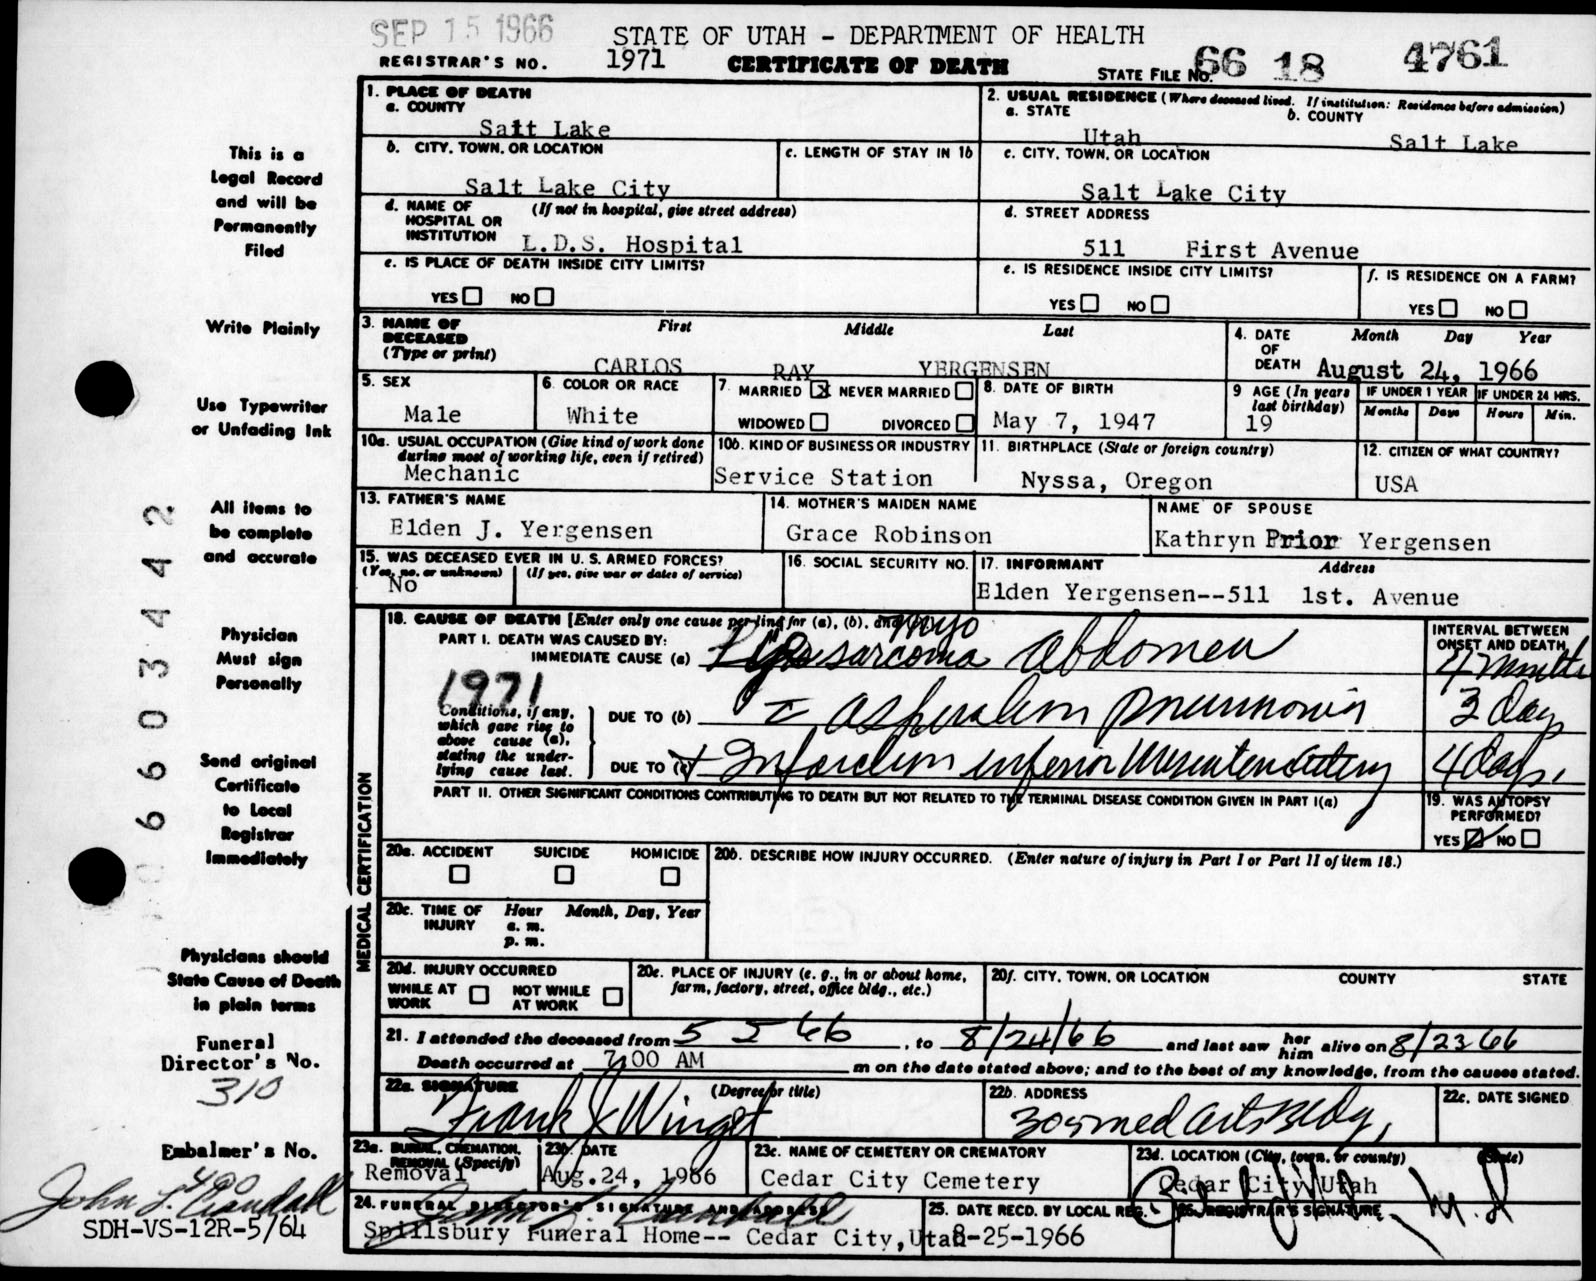 SEP 15 1966
STATE OF UTAH - DEPARTMENT OF HEALTH
REGISTRAR'S NO. 1971 CERTIFICATE OF DEATH STATE FILE No. 66 18 4761
1. PLACE OF DEATH
a. COUNTY
Salt Lake
2. USUAL RESIDENCE (Where deceased lived. If institution: Residence before admission)
a. STATE b. COUNTY
Utah Salt Lake
b. CITY, TOWN, OR LOCATION c. LENGTH OF STAY IN 1b
Salt Lake City
c. CITY, TOWN, OR LOCATION
Salt Lake City
d. NAME OF (If not in hospital, give street address)
HOSPITAL OR
INSTITUTION L.D.S. Hospital
d. STREET ADDRESS
511 First Avenue
e. IS PLACE OF DEATH INSIDE CITY LIMITS?
YES NO
e. IS RESIDENCE INSIDE CITY LIMITS?
YES NO
f. IS RESIDENCE ON A FARM?
YES NO
3. NAME OF First Middle Last
DECEASED
(Type or print)
CARLOS RAY YERGENSEN
4. DATE Month Day Year
OF
DEATH August 24, 1966
5. SEX
Male
6. COLOR OR RACE
White
7. MARRIED X NEVER MARRIED
WIDOWED DIVORCED
8. DATE OF BIRTH
May 7, 1947
9 AGE (In years
last birthday)
19
IF UNDER 1 YEAR IF UNDER 24 HRS.
Months Days Hours Min.
10a. USUAL OCCUPATION (Give kind of work done
during most of working life, even if retired)
Mechanic
10b. KIND OF BUSINESS OR INDUSTRY
Service Station
11. BIRTHPLACE (State or foreign country)
Nyssa, Oregon
12. CITIZEN OF WHAT COUNTRY?
USA
13. FATHER'S NAME
Elden J. Yergensen
14. MOTHER'S MAIDEN NAME
Grace Robinson
NAME OF SPOUSE
Kathryn Prior Yergensen
15. WAS DECEASED EVER IN U. S. ARMED FORCES?
(Yes, no, or unknown) (If yes, give war or dates of service)
No
16. SOCIAL SECURITY NO.
17. INFORMANT Address
Elden Yergensen--511 1st. Avenue
18. CAUSE OF DEATH [Enter only one cause per line for (a), (b), and (c)]
PART I. DEATH WAS CAUSED BY:
IMMEDIATE CAUSE (a) sarcoma abdomen
INTERVAL BETWEEN
ONSET AND DEATH
1971
Conditions, if any,
which gave rise to
above cause (a),
stating the under-
lying cause last.
DUE TO (b) aspiration pneumonia 3 days
DUE TO (c) + Infarction inferior Mesenteric artery 4 days.
PART II. OTHER SIGNIFICANT CONDITIONS CONTRIBUTING TO DEATH BUT NOT RELATED TO THE TERMINAL DISEASE CONDITION GIVEN IN PART I(a)
19. WAS AUTOPSY
PERFORMED?
YES NO
MEDICAL CERTIFICATION
20a. ACCIDENT SUICIDE HOMICIDE
20b. DESCRIBE HOW INJURY OCCURRED. (Enter nature of injury in Part I or Part II of item 18.)
20c. TIME OF Hour Month, Day, Year
INJURY a. m.
p. m.
20d. INJURY OCCURRED
WHILE AT NOT WHILE
WORK AT WORK
20e. PLACE OF INJURY (e. g., in or about home,
farm, factory, street, office bldg., etc.)
20f. CITY, TOWN, OR LOCATION COUNTY STATE
21. I attended the deceased from 5 5 66, to 8/24/66 and last saw her him alive on 8/23 66
Death occurred at 7:00 AM m on the date stated above; and to the best of my knowledge, from the causes stated.
22a. SIGNATURE (Degree or title)
Frank J Winget
22b. ADDRESS
305 med arts Bldg,
22c. DATE SIGNED
23a. BURIAL, CREMATION,
REMOVAL (Specify)
Removal
23b. DATE
Aug.24, 1966
23c. NAME OF CEMETERY OR CREMATORY
Cedar City Cemetery
23d. LOCATION (City, town, or county) (State)
Cedar City, Utah
24. FUNERAL DIRECTOR'S SIGNATURE AND ADDRESS
Spillsbury Funeral Home-- Cedar City, Utah
25. DATE RECD. BY LOCAL REG.
8-25-1966
26. REGISTRAR'S SIGNATURE
M.D
This is a
Legal Record
and will be
Permanently
Filed
Write Plainly
Use Typewriter
or Unfading Ink
All items to
be complete
and accurate
Physician
Must sign
Personally
Send original
Certificate
to Local
Registrar
Immediately
Physicians should
State Cause of Death
in plain terms
Funeral
Director's No.
310
Embalmer's No.
490
John L. Crandall
SDH-VS-12R-5/64
006603442